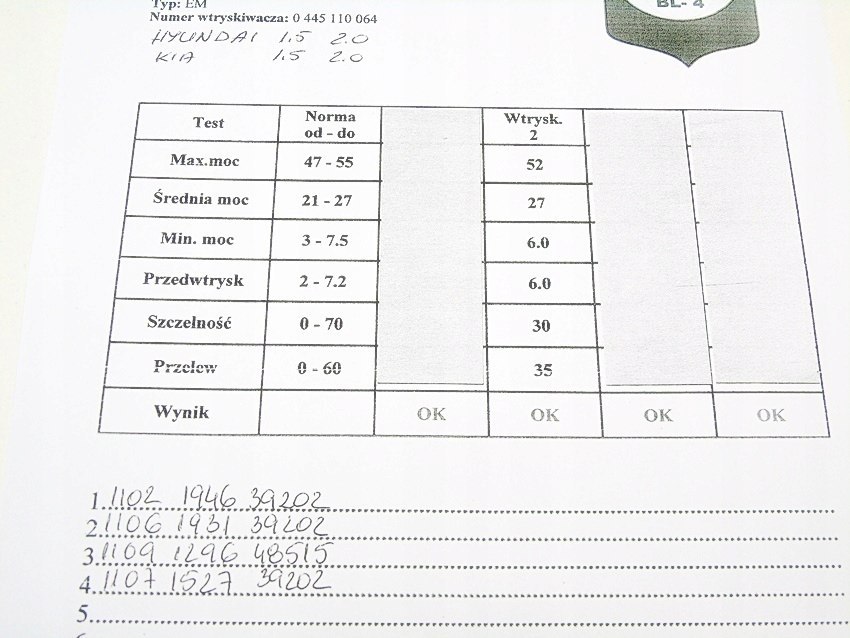 Typ: EM
BL- 4
Numer wtryskiwacza: 0 445 110 064
HYUNDAI 1.5 2.0
KIA 1.5 2.0
Test Norma od - do Wtrysk. 2
Max.moc 47 - 55 52
Średnia moc 21 - 27 27
Min. moc 3 - 7.5 6.0
Przedwtrysk 2 - 7.2 6.0
Szczelność 0 - 70 30
Przelew 0 - 60 35
Wynik OK OK OK OK
1. 1102 1946 39202
2. 1106 1931 39202
3. 1109 1296 48515
4. 1107 1527 39202
5.